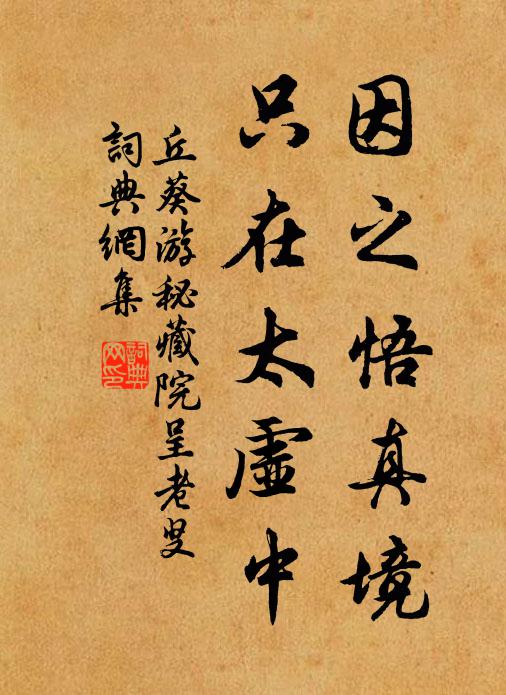 因之悟真境
只在太虛中
丘葵游秘藏院呈老叟
詞典網集
詞典網印